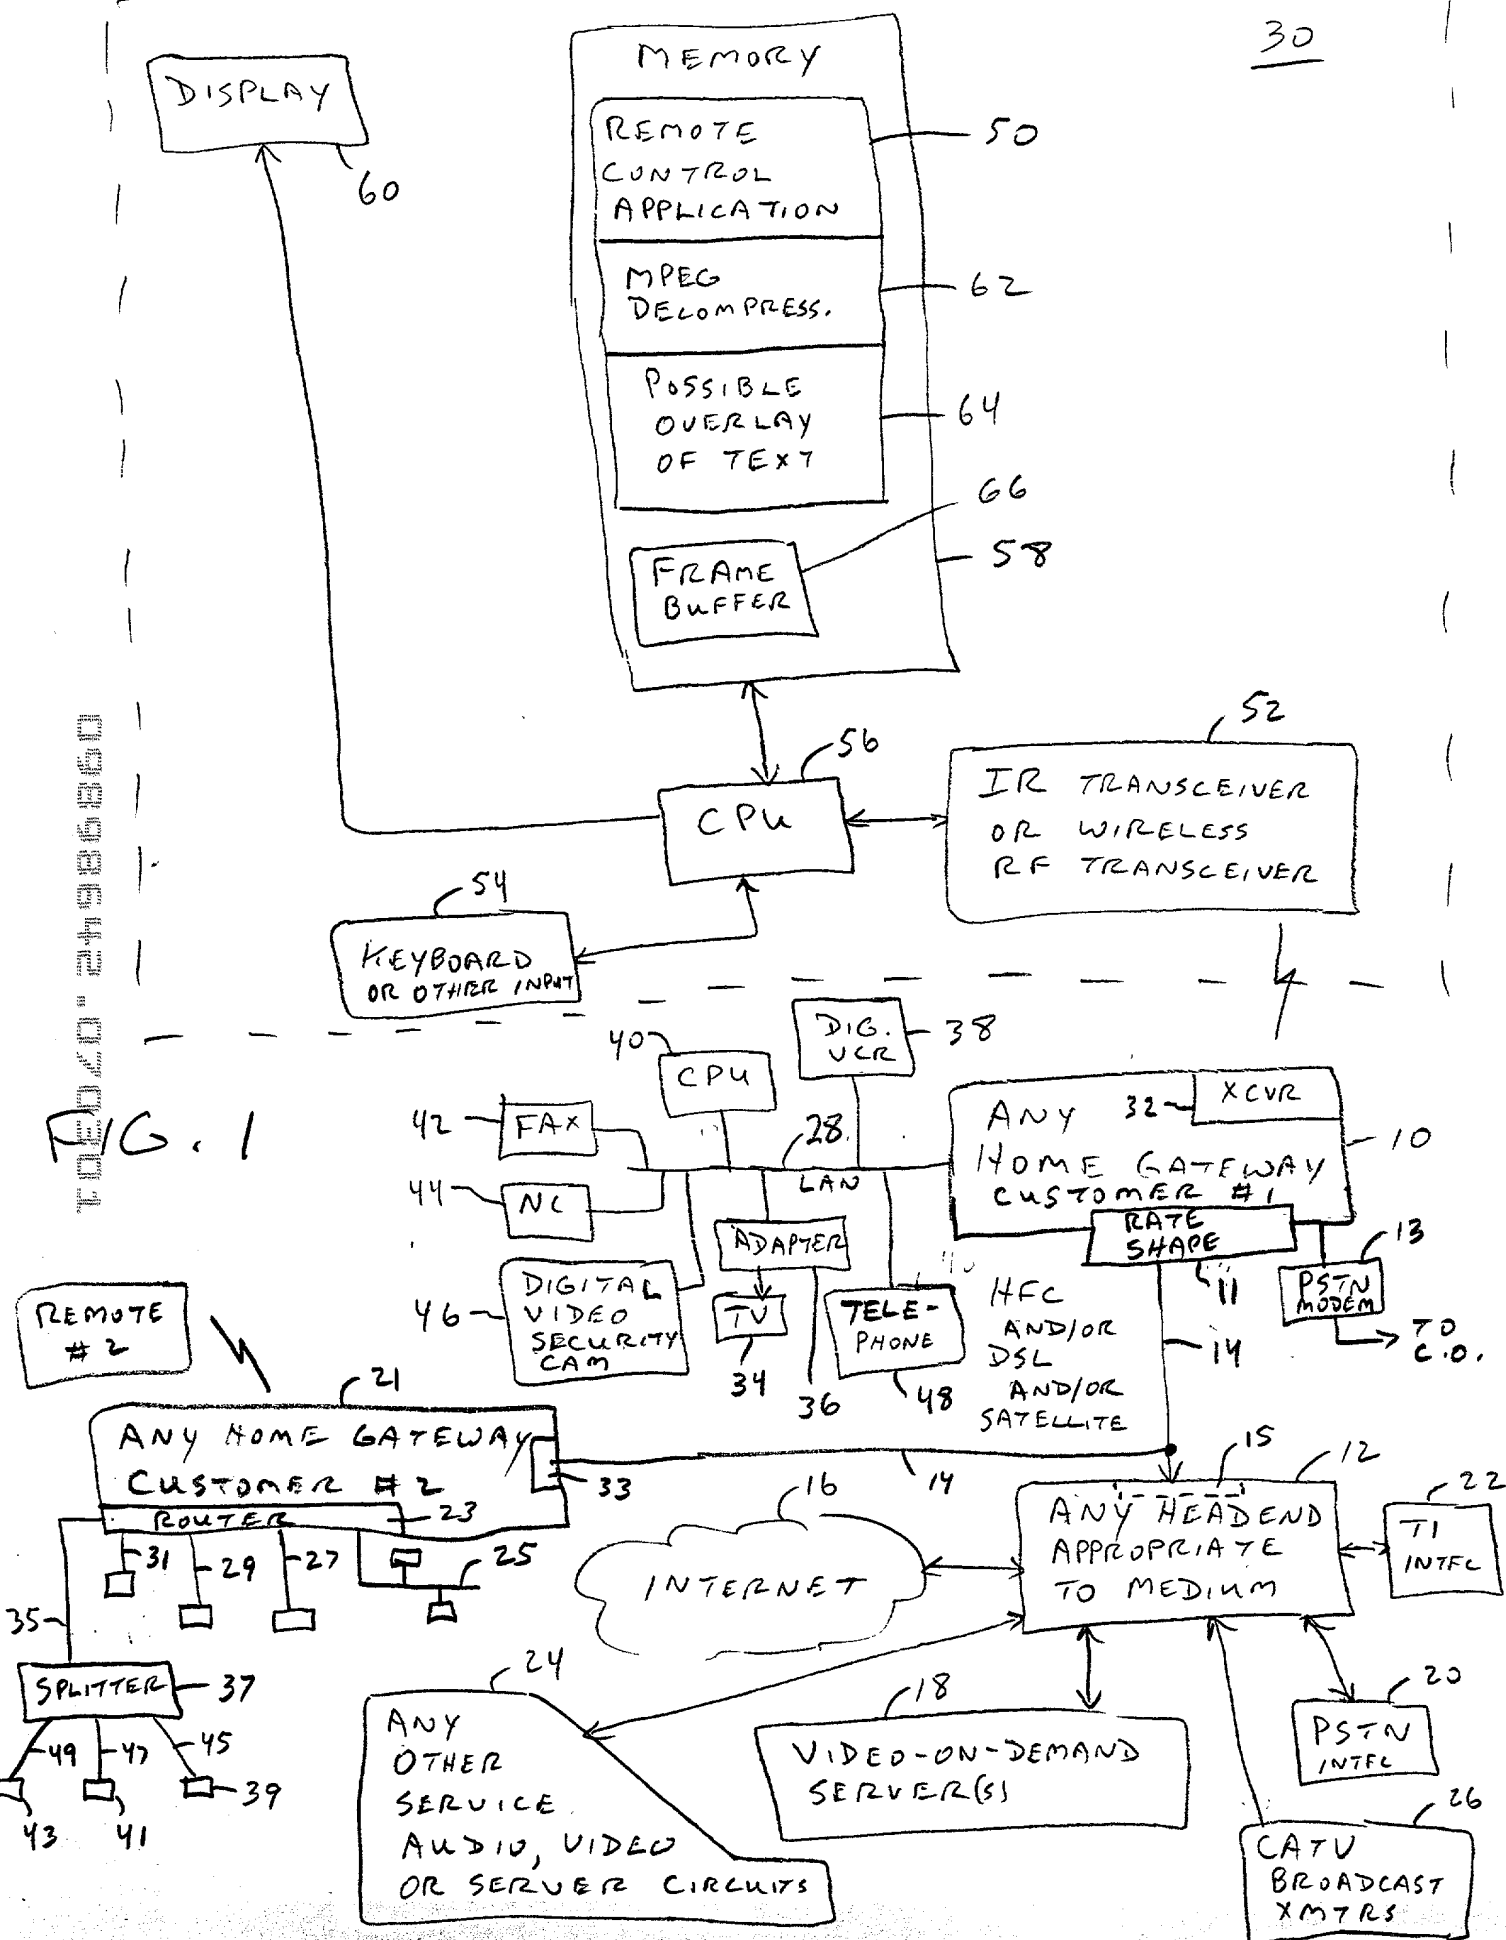 30
MEMORY
DISPLAY
60
REMOTE
CONTROL
APPLICATION
50
MPEG
DECOMPRESS.
62
POSSIBLE
OVERLAY
OF TEXT
64
66
FRAME
BUFFER
58
52
56
CPU
IR TRANSCEIVER
OR WIRELESS
RF TRANSCEIVER
54
KEYBOARD
OR OTHER INPUT
09898642.070301
FIG. 1
40
CPU
DIG.
VCR
38
42
FAX
28
LAN
44
NC
ADAPTER
ANY
HOME GATEWAY
CUSTOMER #1
32
XCVR
10
RATE
SHAPE
11
13
PSTN
MODEM
TO
C.O.
46
DIGITAL
VIDEO
SECURITY
CAM
TV
34
36
TELE-
PHONE
48
HFC
AND/OR
DSL
AND/OR
SATELLITE
14
REMOTE
#2
21
ANY HOME GATEWAY
CUSTOMER #2
33
14
ROUTER
23
31
29
27
25
35
SPLITTER
37
49
47
45
43
41
39
16
INTERNET
15
12
ANY HEADEND
APPROPRIATE
TO MEDIUM
22
T1
INTFC
24
ANY
OTHER
SERVICE
AUDIO, VIDEO
OR SERVER CIRCUITS
18
VIDEO-ON-DEMAND
SERVER(S)
20
PSTN
INTFC
26
CATV
BROADCAST
XMTRS